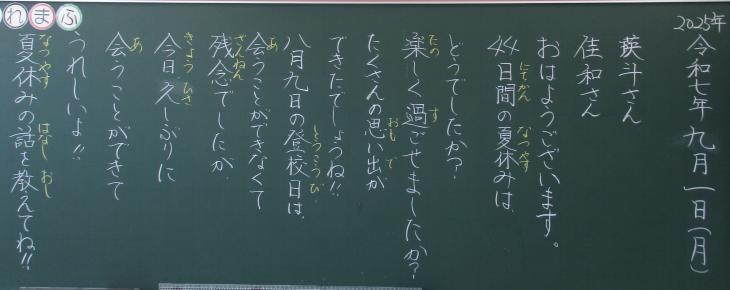 2025年
令和七年 九月一日(月)
瑛斗さん
佳和さん
おはようございます。
44日間の夏休みは、
にちかん なつやす
どうでしたか?
楽しく過ごせましたか?
たの す
たくさんの思い出が
おも で
できたでしょうね!!
八月九日の登校日は、
とうこうび
会うことができなくて
あ
残念でしたが、
ざんねん
今日、久しぶりに
きょう ひさ
会うことができて
あ
うれしいよ!!
夏休みの話を教えてね!!
なつやす はなし おし
ふまれ